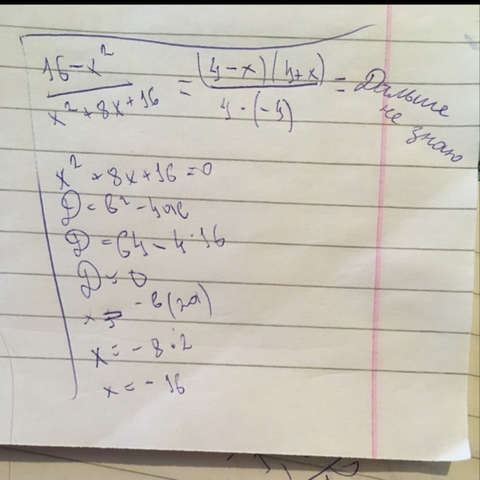 16-x² / x²+8x+16 = (4-x)(4+x) / 4-(-4) = Дальше не знаю
x²+8x+16=0
D=b²-4ac
D=64-4·16
D=0
x= -b(2a)
x=-8·2
x=-16